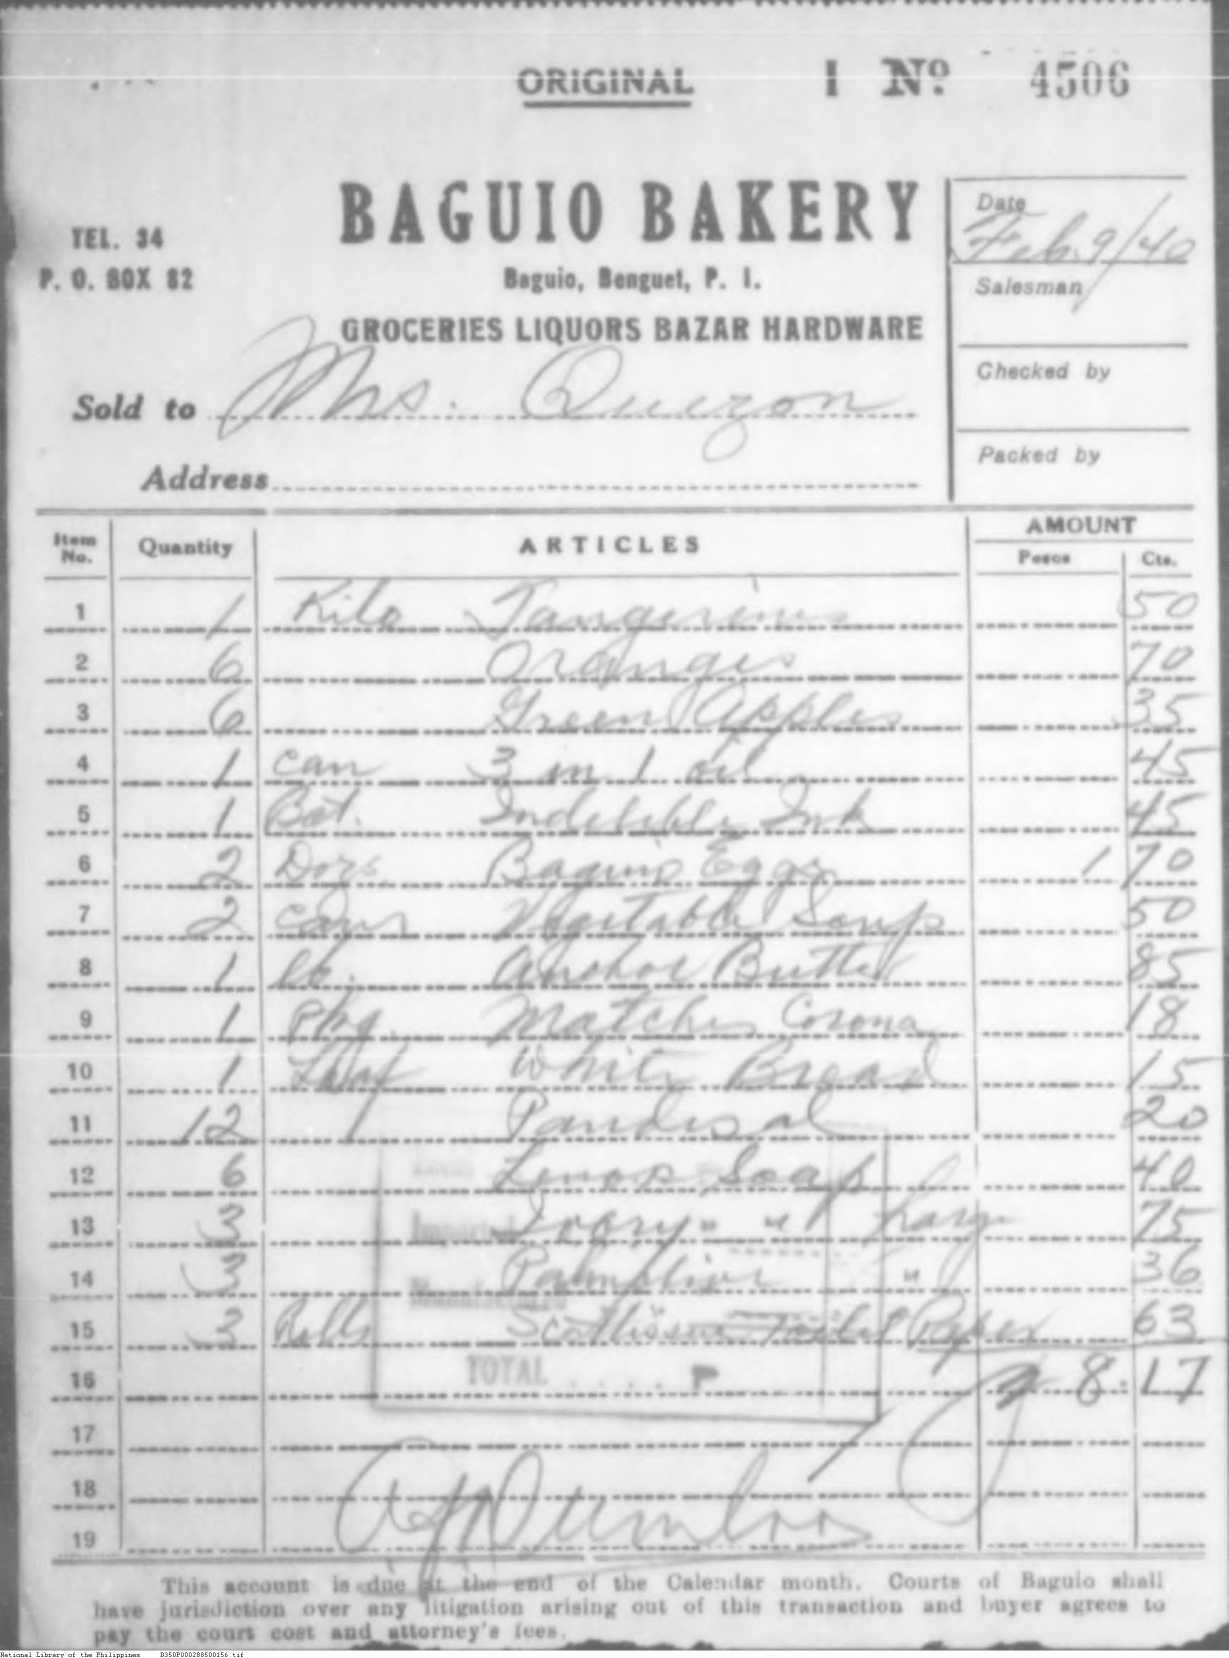 ORIGINAL I Nº 4506
BAGUIO BAKERY
TEL. 34
P. O. BOX 82
Baguio, Benguet, P. I.
GROCERIES LIQUORS BAZAR HARDWARE
Date
Feb. 9/40
Salesman
Checked by
Packed by
Sold to Mrs. Quezon
Address
Item No. Quantity ARTICLES AMOUNT
Pesos Cts.
1 1 Kilo Tangerines 50
2 6 Oranges 70
3 6 Green Apples 35
4 1 can 3 in 1 oil 45
5 1 Bot. Indelible Ink 45
6 2 Dozs Baguio Eggs 1 70
7 2 cans Vegetable Soup 50
8 1 lb. Anchor Butter 85
9 1 pkg. Matches Corona 18
10 1 Loaf White Bread 15
11 12 Pandesal 20
12 6 Lenox Soap 40
13 3 Ivory " " Large 75
14 3 Palmolive " 36
15 3 Rolls Scottissue Toilet Paper 63
16 8.17
17
18
19
Imported
TOTAL .... P
This account is due at the end of the Calendar month. Courts of Baguio shall
have jurisdiction over any litigation arising out of this transaction and buyer agrees to
pay the court cost and attorney's fees.
National Library of the Philippines D350P000288500156.tif